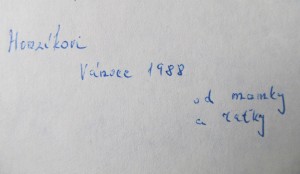 Honzíkovi
Vánoce 1988
od mamky
a taťky